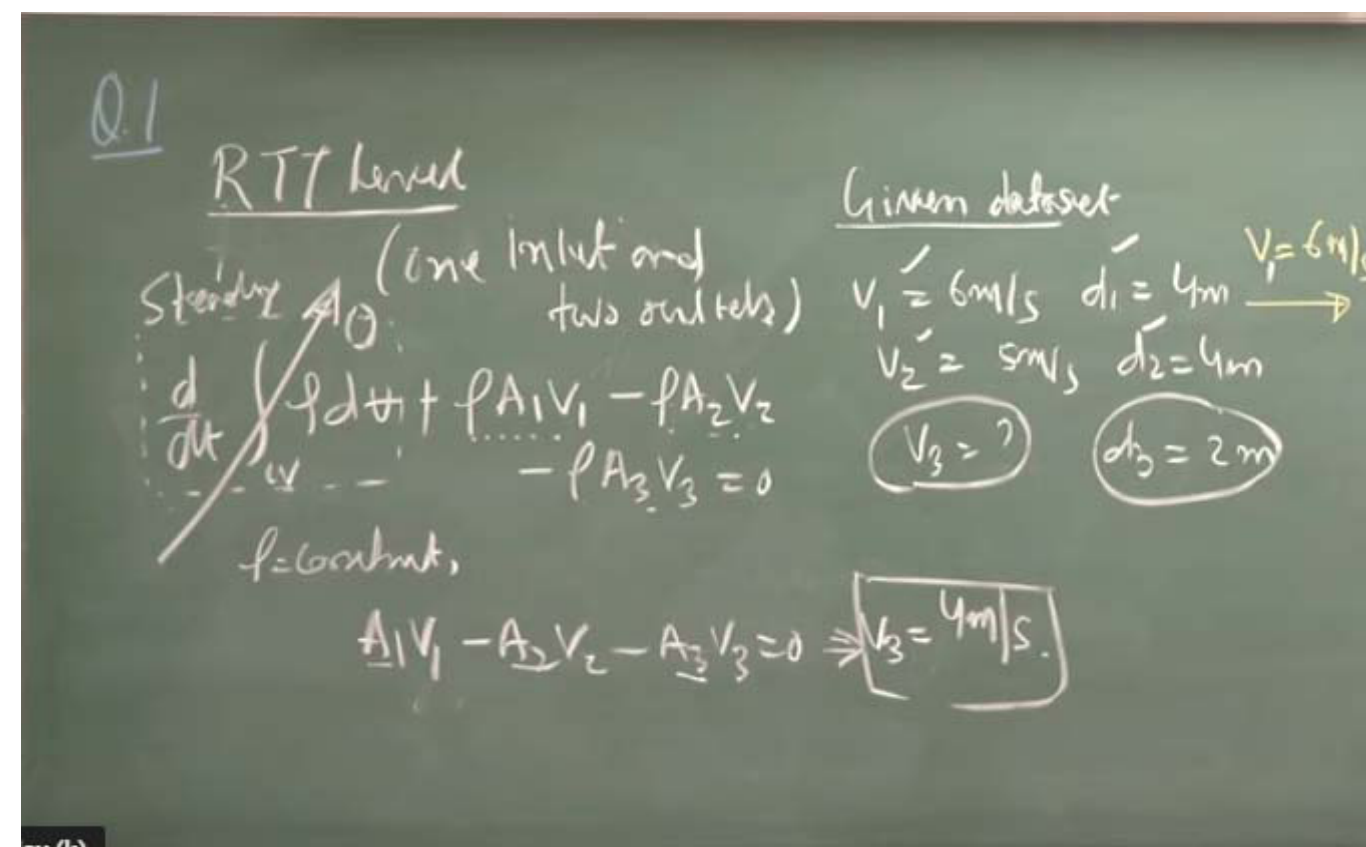 Q.1
RTT
(one Inlet and
two outlets)
Steady 0
d/dt ∫ ρd∀ + ρA₁V₁ - ρA₂V₂
CV
- ρA₃V₃ = 0
ρ = constant,
A₁V₁ - A₂V₂ - A₃V₃ = 0 ⇒ V₃ = 4m/s.
Given dataset
V₁ = 6m/s d₁ = 4m
V₂ = 5m/s d₂ = 4m
V₃ = ? d₃ = 2m
V₁ = 6m/s